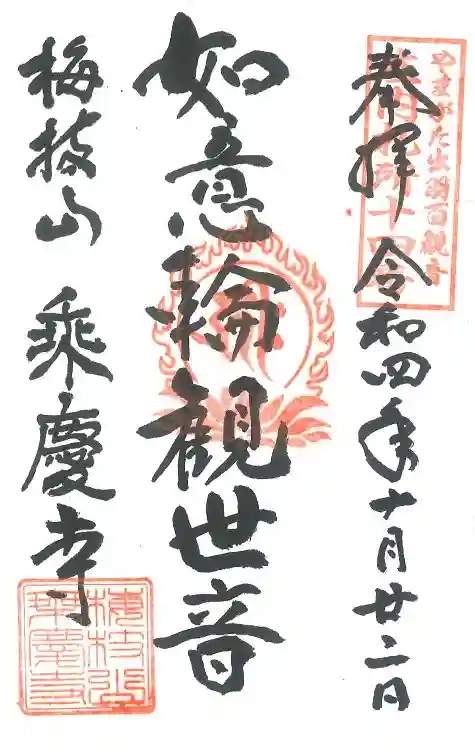 やまがた出羽百観音
庄内札所十四番
奉拝 令和四年十月廿二日
如意輪観世音
梅枝山 乗慶寺
梅枝山
乗慶寺